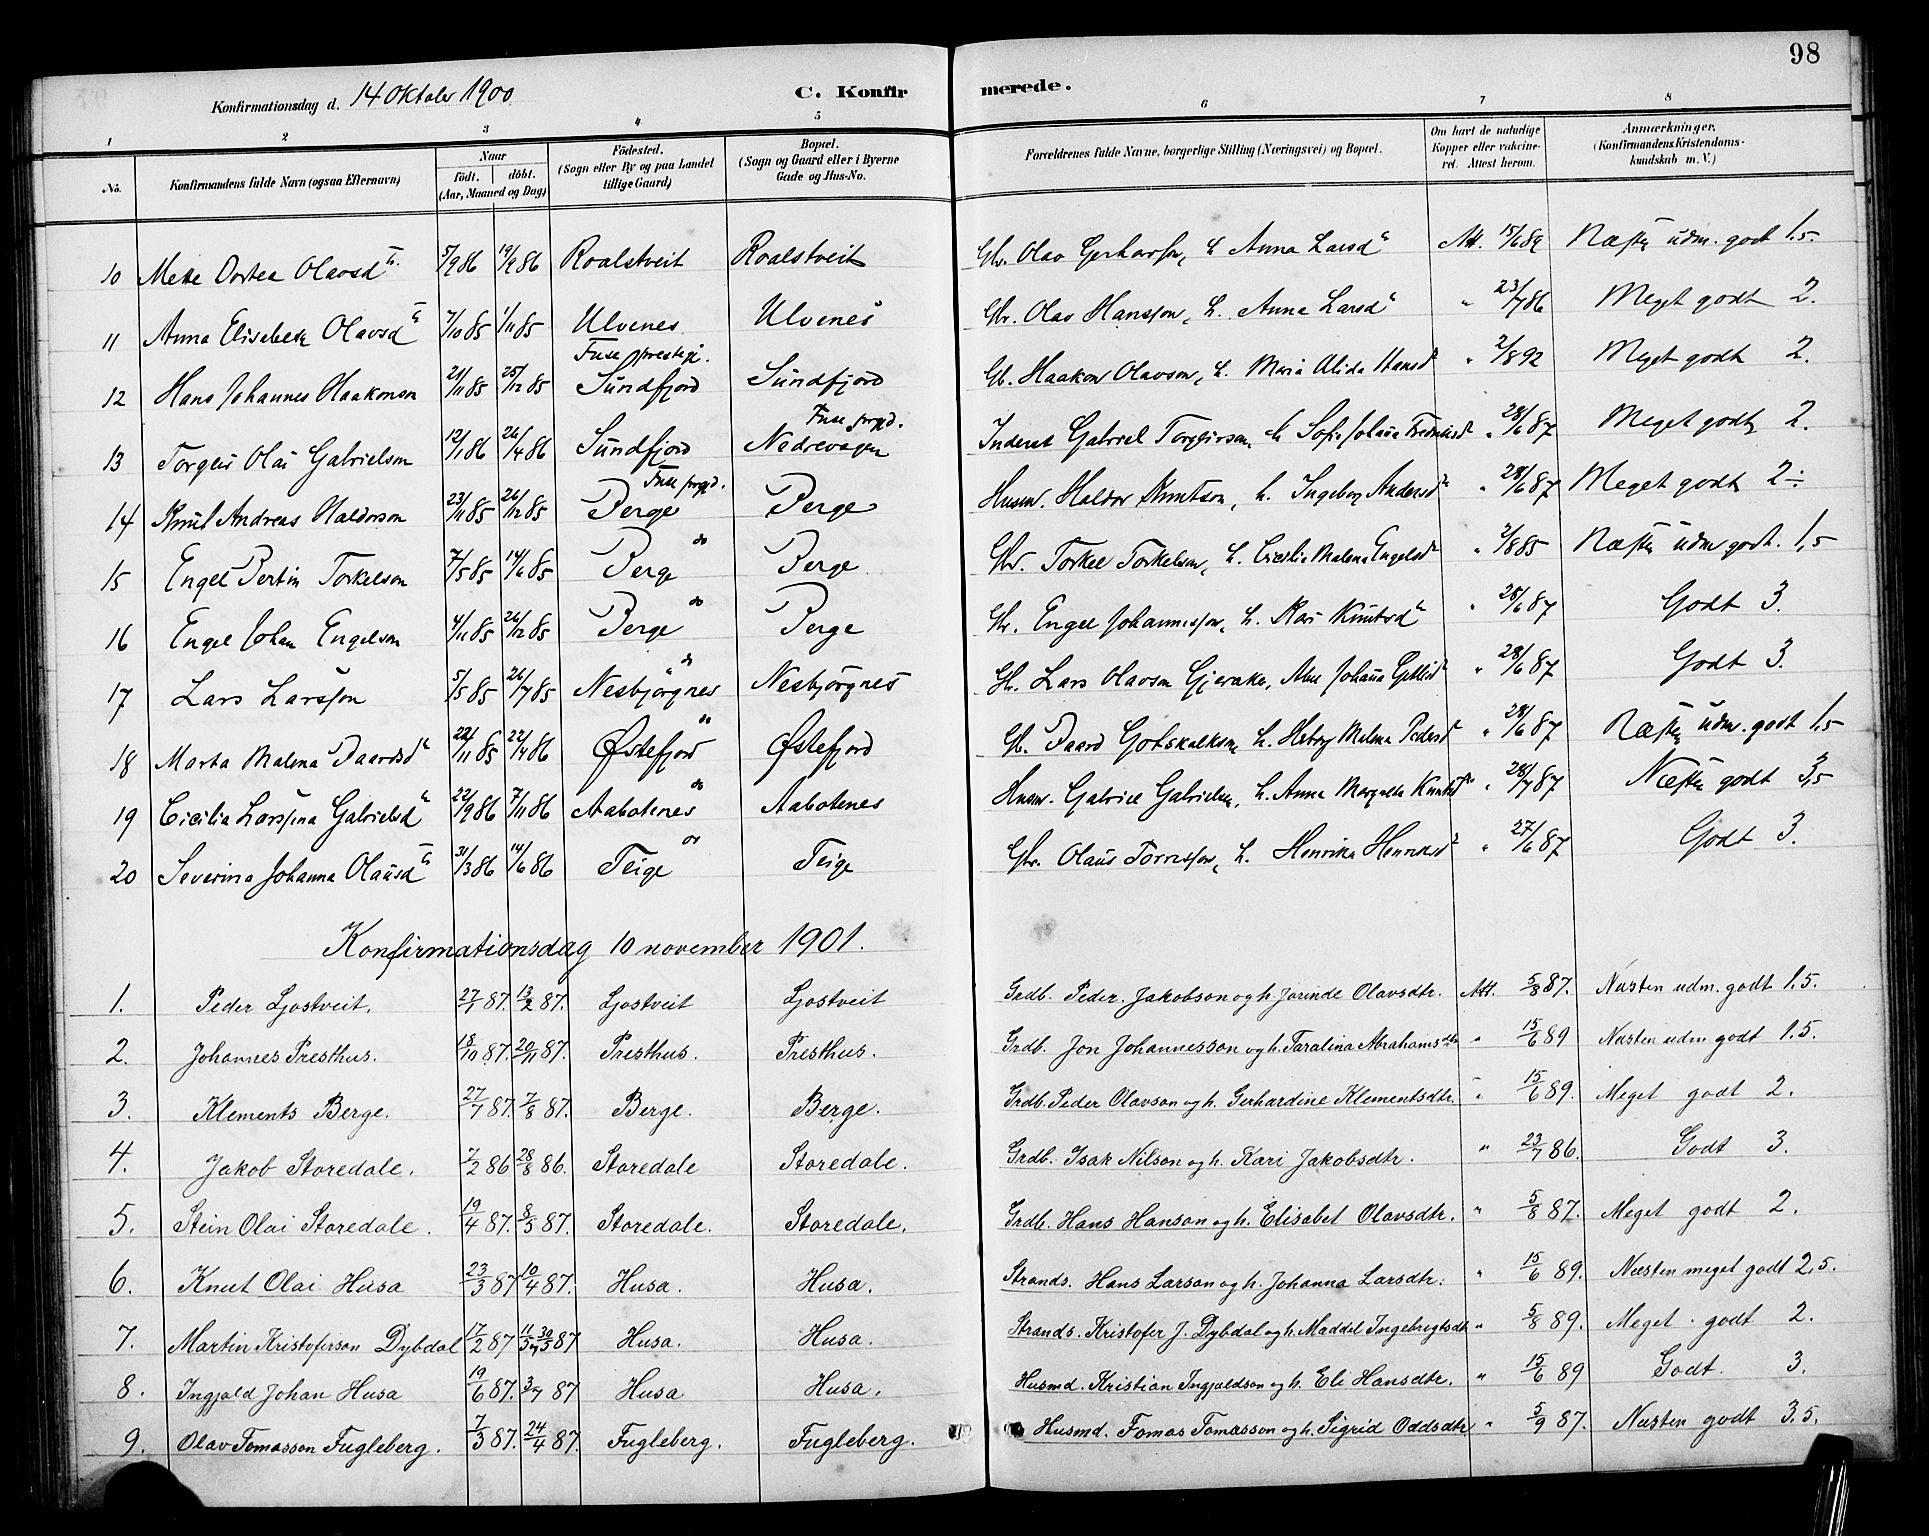 98
Konfirmationsdag d. 14 Oktober 1900 C. Konfirmerede.
1 2 3 4 5 6 7 8
No. Konfirmandens fulde Navn (ogsaa Efternavn) Naar födt. döbt. (Aar, Maaned og Dag) Födested. (Sogn eller By og paa Landet tillige Gaard) Bopæl. (Sogn og Gaard eller i Byerne Gade og Hus-No. Forældrenes fulde Navne, borgerlige Stilling (Næringsvei) og Bopæl. Om havt de naturlige Kopper eller vaccineret. Attest herom. Anmærkninger. (Konfirmandens Kristendomskundskab m. V.)
10 Mette Dortea Olavsd 5/9 86 19/9 86 Roalstveit Roalstveit Gbr. Olav Gerharsson, h. Anna Larsd Att. 15/6 89 Næsten udm. godt 1.5.
11 Anna Elisabeth Olavsd 7/10 85 1/11 85 Ulvenes Ulvenes Gbr. Olav Hansson, h. Anna Larsd " 23/7 86 Meget godt 2.
12 Hans Johannes Haakonson 21/11 85 25/12 85 Fuse prestegj. Sundfjord Sundfjord Gb. Haakon Olavson, h. Maria Alida Hansd " 2/8 92 Meget godt 2.
13 Torgeis Olai Gabrielson 12/1 86 26/4 86 Sundfjord Fuse prgjd. Nedrevagen Inderst Gabriel Torgeirson, h. Sofie Johanna Fredriksd " 28/6 87 Meget godt 2.
14 Knut Andreas Haldorson 23/11 85 26/12 85 Fuse prgjd. Berge Berge Husm. Haldor Knutson, h. Ingeborg Andersd " 28/6 87 Meget godt 2-:
15 Engel Bertin Torkelson 7/5 85 14/6 85 do Berge Berge Gbr. Torkel Torkelson, h. Cicilie Malena Engelsd " 2/8 85 Næsten udm godt. 1,5
16 Engel Johan Engelson 4/11 85 26/12 85 do Berge Berge Gbr. Engel Johannesson, h. Kari Knutsd " 28/6 87 Godt 3.
17 Lars Larsson 5/5 85 26/7 85 do Nesbjörgnes Nesbjörgnes Gbr. Lars Olavson Gjerake, Johana " 28/6 87 Godt 3.
18 Marta Malena Baardsd 22/11 85 22/4 86 do Østefjord Østefjord Gb. Baard Gotskalkson, h. Malena Pedersd " 28/6 87 Næsten udm. godt 1,5
19 Cicilia Larsina Gabrielsd 22/9 86 7/11 86 do Aabotenes Aabotenes Husm. Gabriel Gabrielsen, h. Anna Margreta Knutsd " 28/7 87 Næsten godt 3,5
20 Severina Johanna Olausd 31/3 86 14/6 86 do Teige Teige Gbr. Olaus Tornesson, h. Henrika Henriksd " 27/6 87 Godt 3.
Konfirmationsdag 10 november 1901.
1. Peder Ljostveit. 27/1 87. 13/2 87. Ljostveit Ljostveit Grdb. Peder Jakobson og h. Jorinde Olavsdtr. Att. 5/8 87. Næsten udm. godt 1.5.
2. Johannes Presthus. 18/10 87. 20/11 87. Presthus. Presthus. Grdb. Jon Johannesson og h. Taralina Abrahamsdtr " 15/6 89 Næsten udm godt 1.5.
3. Klements Berge. 27/7 87. 7/8 87. Berge. Berge. Grdb. Peder Olavson og h. Gerhardine Klementsdtr. " 15/6 89. Meget godt 2.
4. Jakob Storedale. 7/2 86 28/8 86. Storedale Storedale. Grdb. Isak Nilson og h. Kari Jakobsdtr. " 23/7 86. Godt 3.
5. Stein Olai Storedale. 19/4 87. 8/5 87. Storedale. Storedale. Grdb. Hans Hanson og h. Elisabet Olavsdtr. " 5/8 87. Meget godt 2.
6. Knut Olai Husa 23/3 87 10/4 87. Husa. Husa. Strands. Hans Larson og h. Johanna Larsdtr. " 15/6 89. Næsten meget godt 2,5.
7. Martin Kristoferson Dybdal 17/2 87 11/3 30/5 87 Husa. Husa. Strands. Kristofer J. Dybdal og h. Maddel Ingebrigtsdt " 5/8 89. Meget godt 2.
8. Ingjald Johan Husa 19/6 87. 3/7 87 Husa Husa. Husmd. Kristian Ingjaldson og h. Eli Hansdtr. " 15/6 89 Godt. 3.
9. Olav Tomasson Fugleberg. 7/3 87. 24/4 87. Fugleberg. Fugleberg. Husmd. Tomas Tomasson og h. Sigrid Oddsdtr " 5/9 87. Næsten godt 3.5.